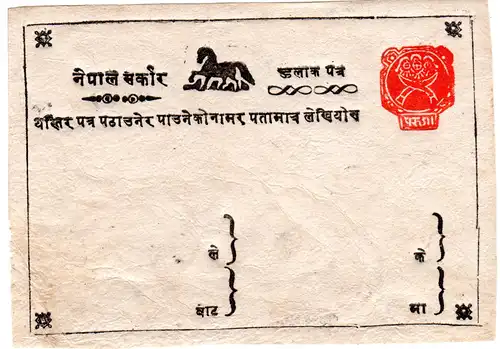 नेपाल सर्कार
हुलाक पत्र
यस्तर्फ पत्र पठाउनेर पाउनेको नामर पतामात्र लेखियोस
ले
के
बाट
मा